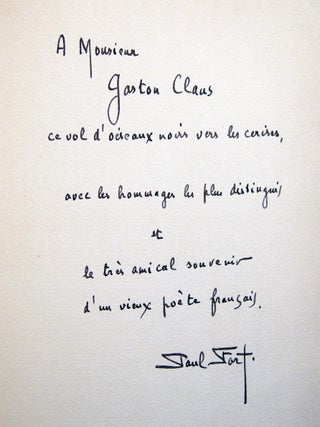 A Monsieur
Gaston Claus
ce vol d'oiseaux noirs vers les cerises,
avec les hommages les plus distingués
et
le très amical souvenir
d'un vieux poète français.
Paul Fort.